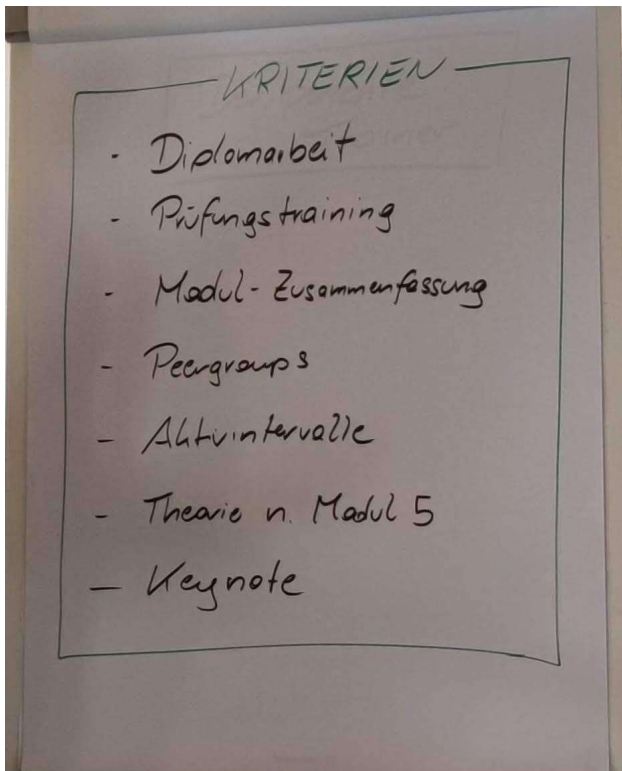 KRITERIEN
- Diplomarbeit
- Prüfungstraining
- Modul-Zusammenfassung
- Peergroups
- Aktivintervalle
- Theorie n. Modul 5
- Keynote